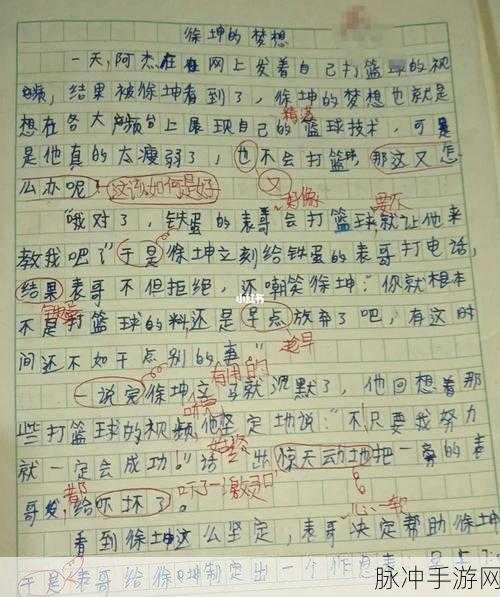 徐坤的梦想
一天,阿杰在网上发着自己打篮球的视
频,结果被徐坤看到了,徐坤的梦想也就是
想在各大平台上展现自己的篮球技术,可是
精湛
是他真的太瘦弱了,也不会打篮球,那这又怎
又
么办呢?这该如何是好
好像 要不
"哦对了,铁蛋的表哥会打篮球就让他来
教我吧了"于是徐坤立刻给铁蛋的表哥打电话,
结果表哥不但拒绝,还嘲笑徐坤:"你就根本
不是打篮球的料还是早点放弃了吧,有这时
趁早
间还不如干点别的事"
有用的
一说完徐坤这 马就沉默了,他回想着那
些打篮球的视频他坚定地说:"不,只要我努力
就一定会成功!"话 出惊天动地把一旁的表
吓了一激灵
哥 都给吓坏了。
看到徐坤这么坚定,表哥决定帮助徐坤
于是表哥给徐坤制定出一个作息表:早上7:
小红书
脉冲手游网